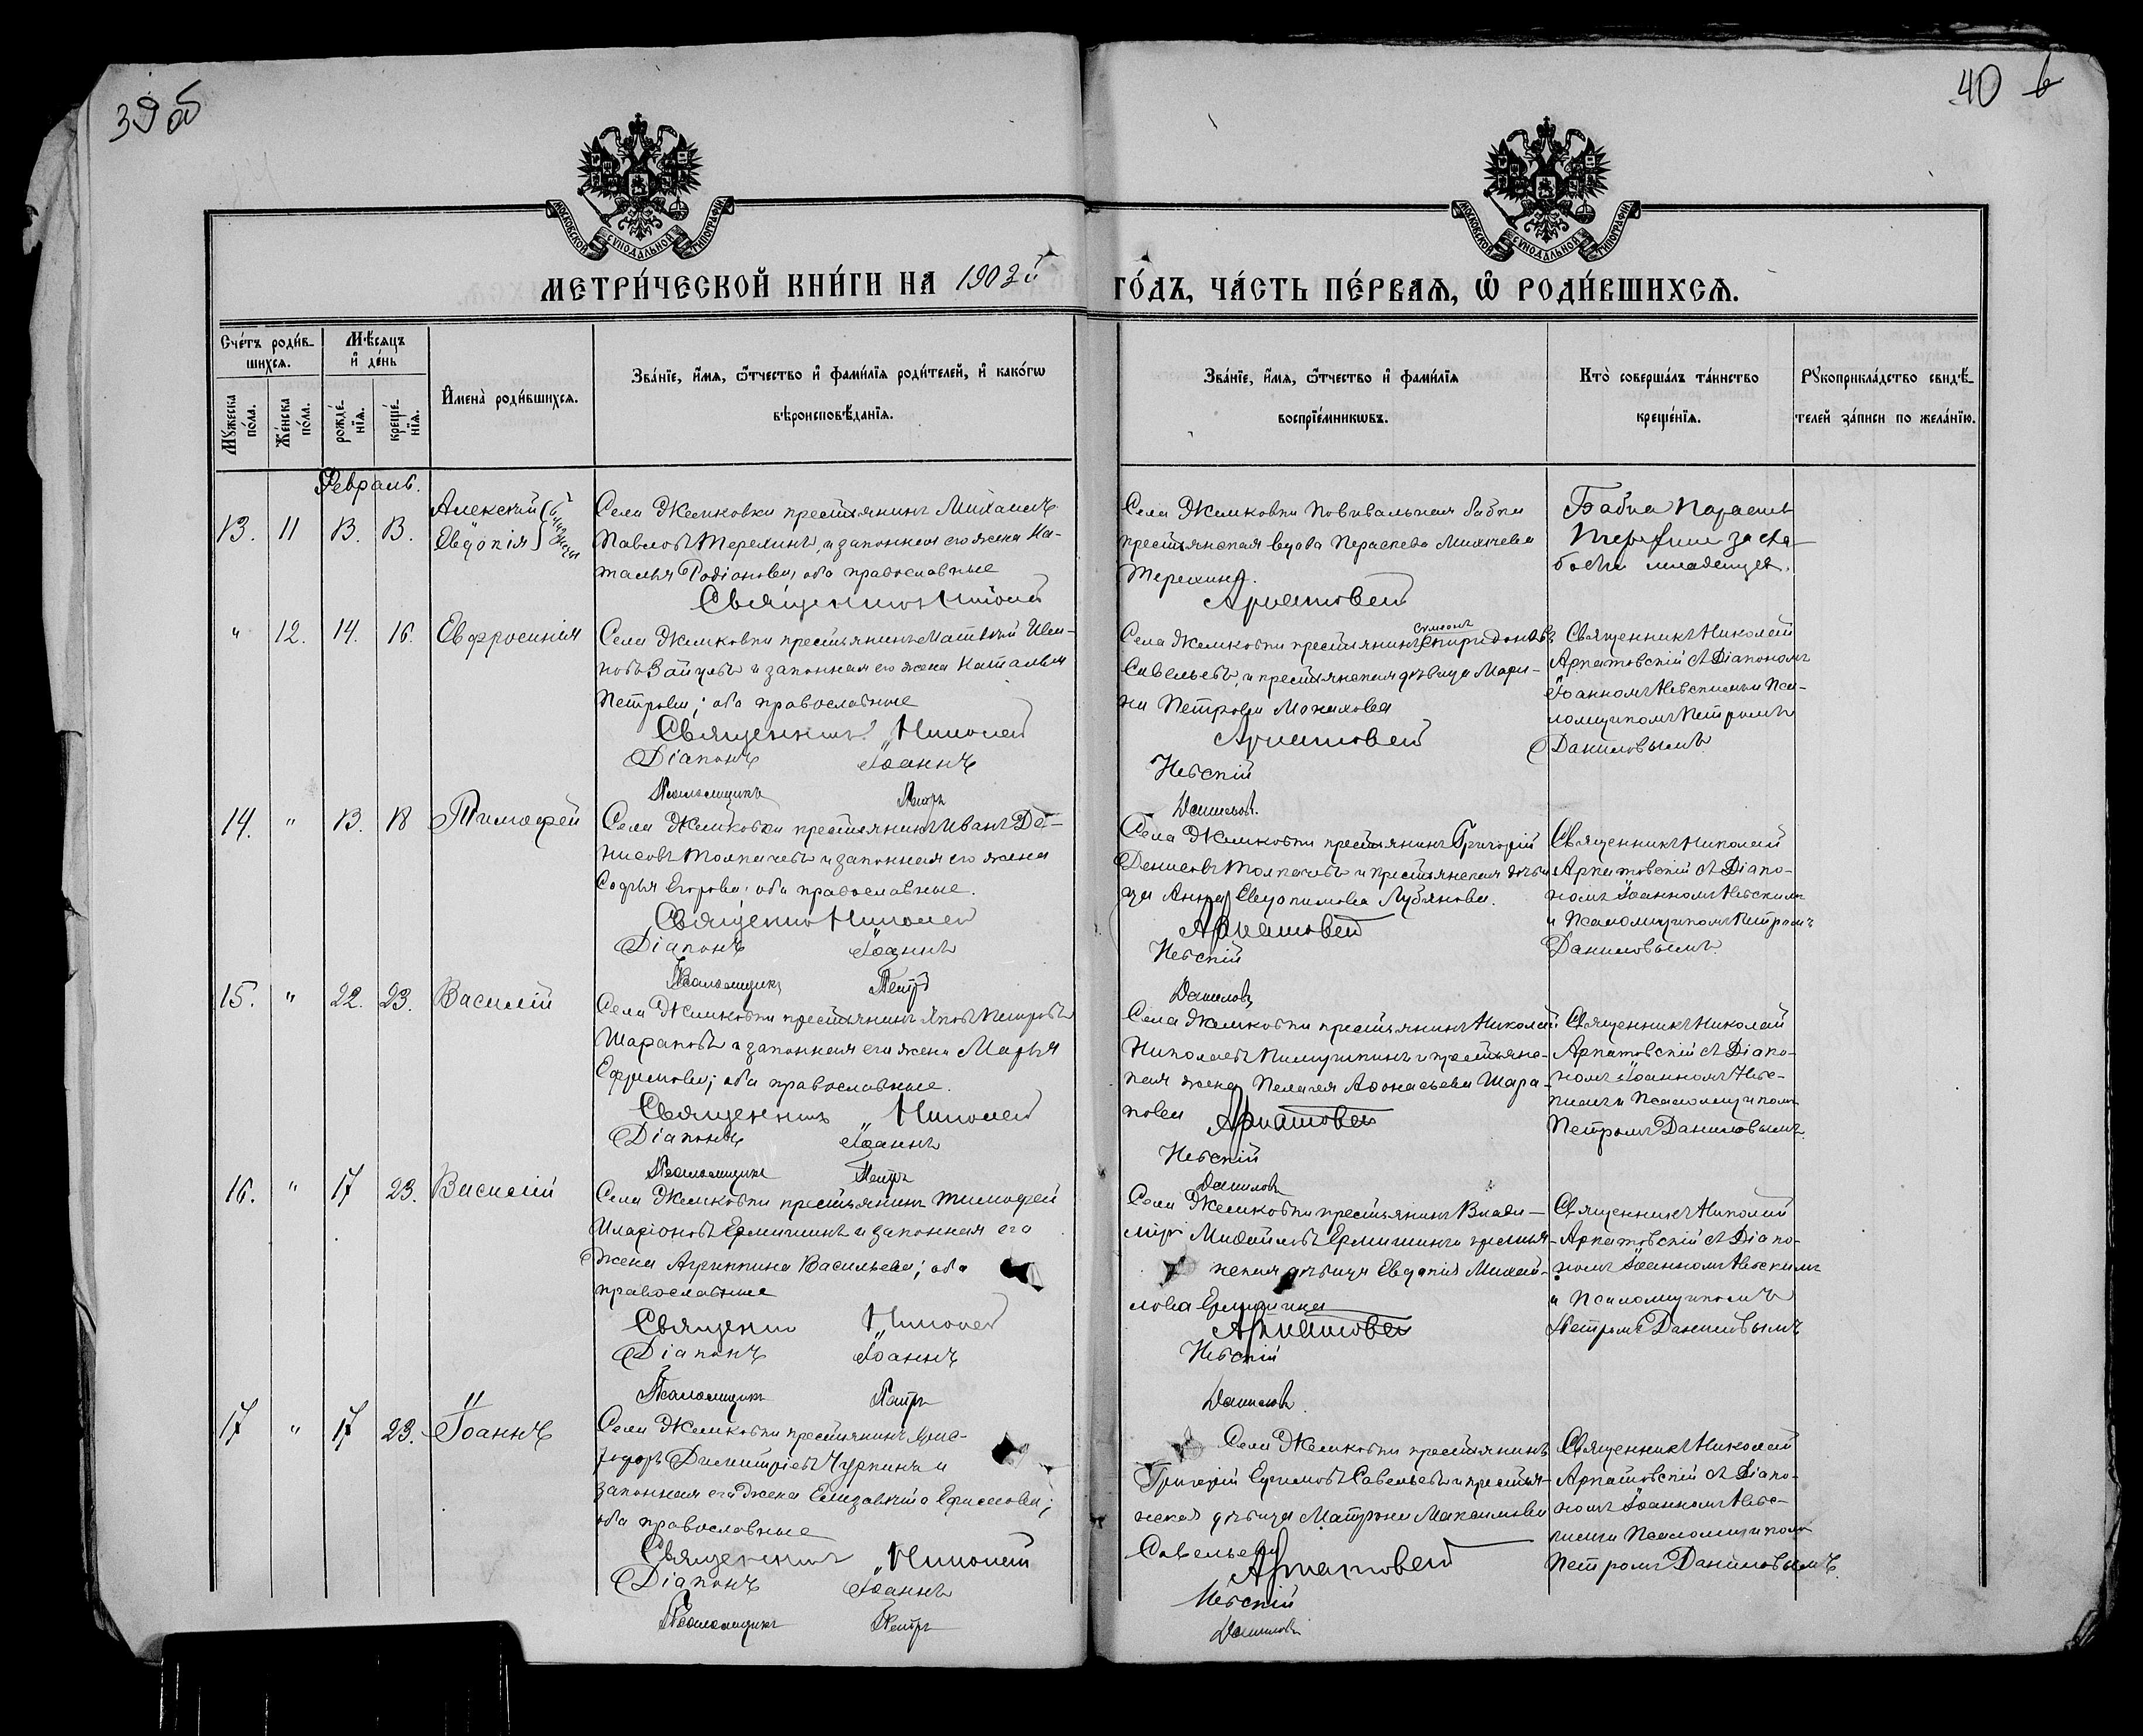 39 об
40
МОСКОВСКОЙ СѴНОДАЛЬНОЙ ТИПОГРАФІИ
МОСКОВСКОЙ СѴНОДАЛЬНОЙ ТИПОГРАФІИ
МЕТРИ́ЧЕСКОЙ КНИ́ГИ НА 1902й ГО́ДЪ, ЧА́СТЬ ПЕ́РВАѦ, Ѽ РОДИ́ВШИХСѦ.
Сче́тъ роди́в-
шихсѧ.
Мꙋ́жеска по́ла.
Же́нска по́ла.
Мѣ́сѧцъ и҆ де́нь
рожде́-
нїѧ.
креще́-
нїѧ.
И҆мена̀ роди́вшихсѧ.
Зва́нїе, и҆́мѧ, ѻ҆́тчество и҆ фами́лїѧ роди́телей, и҆ како́гѡ
вѣроисповѣ́данїѧ.
Зва́нїе, и҆́мѧ, ѻ҆́тчество и҆ фами́лїѧ
воспрїе́мникѡвъ.
Кто̀ соверша́лъ та́инство
креще́нїѧ.
Рꙋкоприкла́дство свидѣ́-
телей за́писи по жела́нїю.
Февраль.
13. 11 13. 13.
Алексѣй
Евдокія
близнецы
Села Жемковки крестьянинъ Михаилъ
Павловъ Терехинъ, и законная его жена На-
талья Родіонова; оба православные
Священникъ Николай
Села Жемковки повивальная бабка
крестьянская вдова Параскева
Терехина.
Архатовскій
Бабка
за сла-
бостью младенцевъ.
" 12. 14. 16. Евфросинія
Села Жемковки крестьянинъ Матвѣй Ива-
новъ и законная его жена Наталья
Петрова; оба православные
Священникъ Николай
Діаконъ Іоаннъ
Псаломщикъ Петръ
Села Жемковки крестьянинъ Симеонъ Спиридоновъ
Савельевъ, и крестьянская дѣвица Мари-
на Петрова Монахова
Архатовскій
Невскій
Даниловъ.
Священникъ Николай
Архатовскій съ Діакономъ
Іоанномъ Невскимъ и Пса-
ломщикомъ Петромъ
Даниловымъ.
14. " 13. 18 Тимофей
Села Жемковки крестьянинъ Иванъ Де-
нисовъ Толкачевъ и законная его жена
Софья Егорова; оба православные.
Священникъ Николай
Діаконъ Іоаннъ
Псаломщикъ Петръ
Села Жемковки крестьянинъ Григорій
Денисовъ Толкачевъ и крестьянская дѣви-
ца Анна Евдокимова Лубянова.
Архатовскій
Невскій
Даниловъ
Священникъ Николай
Архатовскій съ Діако-
номъ Іоанномъ Невскимъ
и Псаломщикомъ Петромъ
Даниловымъ.
15. " 22. 23. Василій
Села Жемковки крестьянинъ Яковъ Петровъ
Шараповъ и законная его жена Марья
Ефимова; оба православные.
Священникъ Николай
Діаконъ Іоаннъ
Псаломщикъ Петръ
Села Жемковки крестьянинъ Николай
Николаевъ и крестьянс-
кая жена Пелагея Афонасьева Шара-
пова
Архатовскій
Невскій
Даниловъ
Священникъ Николай
Архатовскій съ Діако-
номъ Іоанномъ Невс-
кимъ и Псаломщикомъ
Петромъ Даниловымъ.
16. " 17 23. Василій
Села Жемковки крестьянинъ Тимофей
Иларіоновъ Ермишинъ и законная его
жена Агриппина Васильева; оба
православные
Священникъ Николай
Діаконъ Іоаннъ
Псаломщикъ Петръ
Села Жемковки крестьянинъ Влади-
міръ Михайловъ Ермишинъ и крестья-
нская дѣвица Евдокія Михай-
лова Ермишина
Архатовскій
Невскій
Даниловъ.
Священникъ Николай
Архатовскій съ Діако-
номъ Іоанномъ Невскимъ
и Псаломщикомъ
Петромъ Даниловымъ
17 " 17 23. Іоаннъ
Села Жемковки крестьянинъ
Димитріевъ Чуркинъ и
законная его жена Елизавета Ефимова;
оба православные
Священникъ Николай
Діаконъ Іоаннъ
Псаломщикъ Петръ
Села Жемковки крестьянинъ
Григорій Ефимовъ Савельевъ и крестья-
нская дѣвица Матрона Максимова
Савельева
Архатовскій
Невскій
Даниловъ
Священникъ Николай
Архатовскій съ Діако-
номъ Іоанномъ Невс-
кимъ и Псаломщикомъ
Петромъ Даниловымъ.